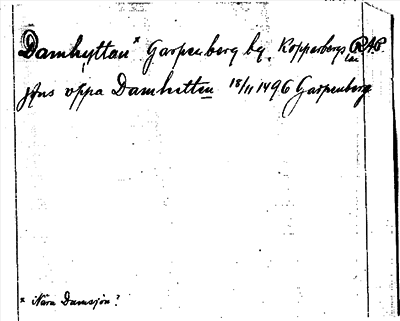 Damhyttan* Garpenberg by. Kopparbergs län RAP
Jöns vppa Damhetten 18/11 1496 Garpenberg
* Nära Damsjön?